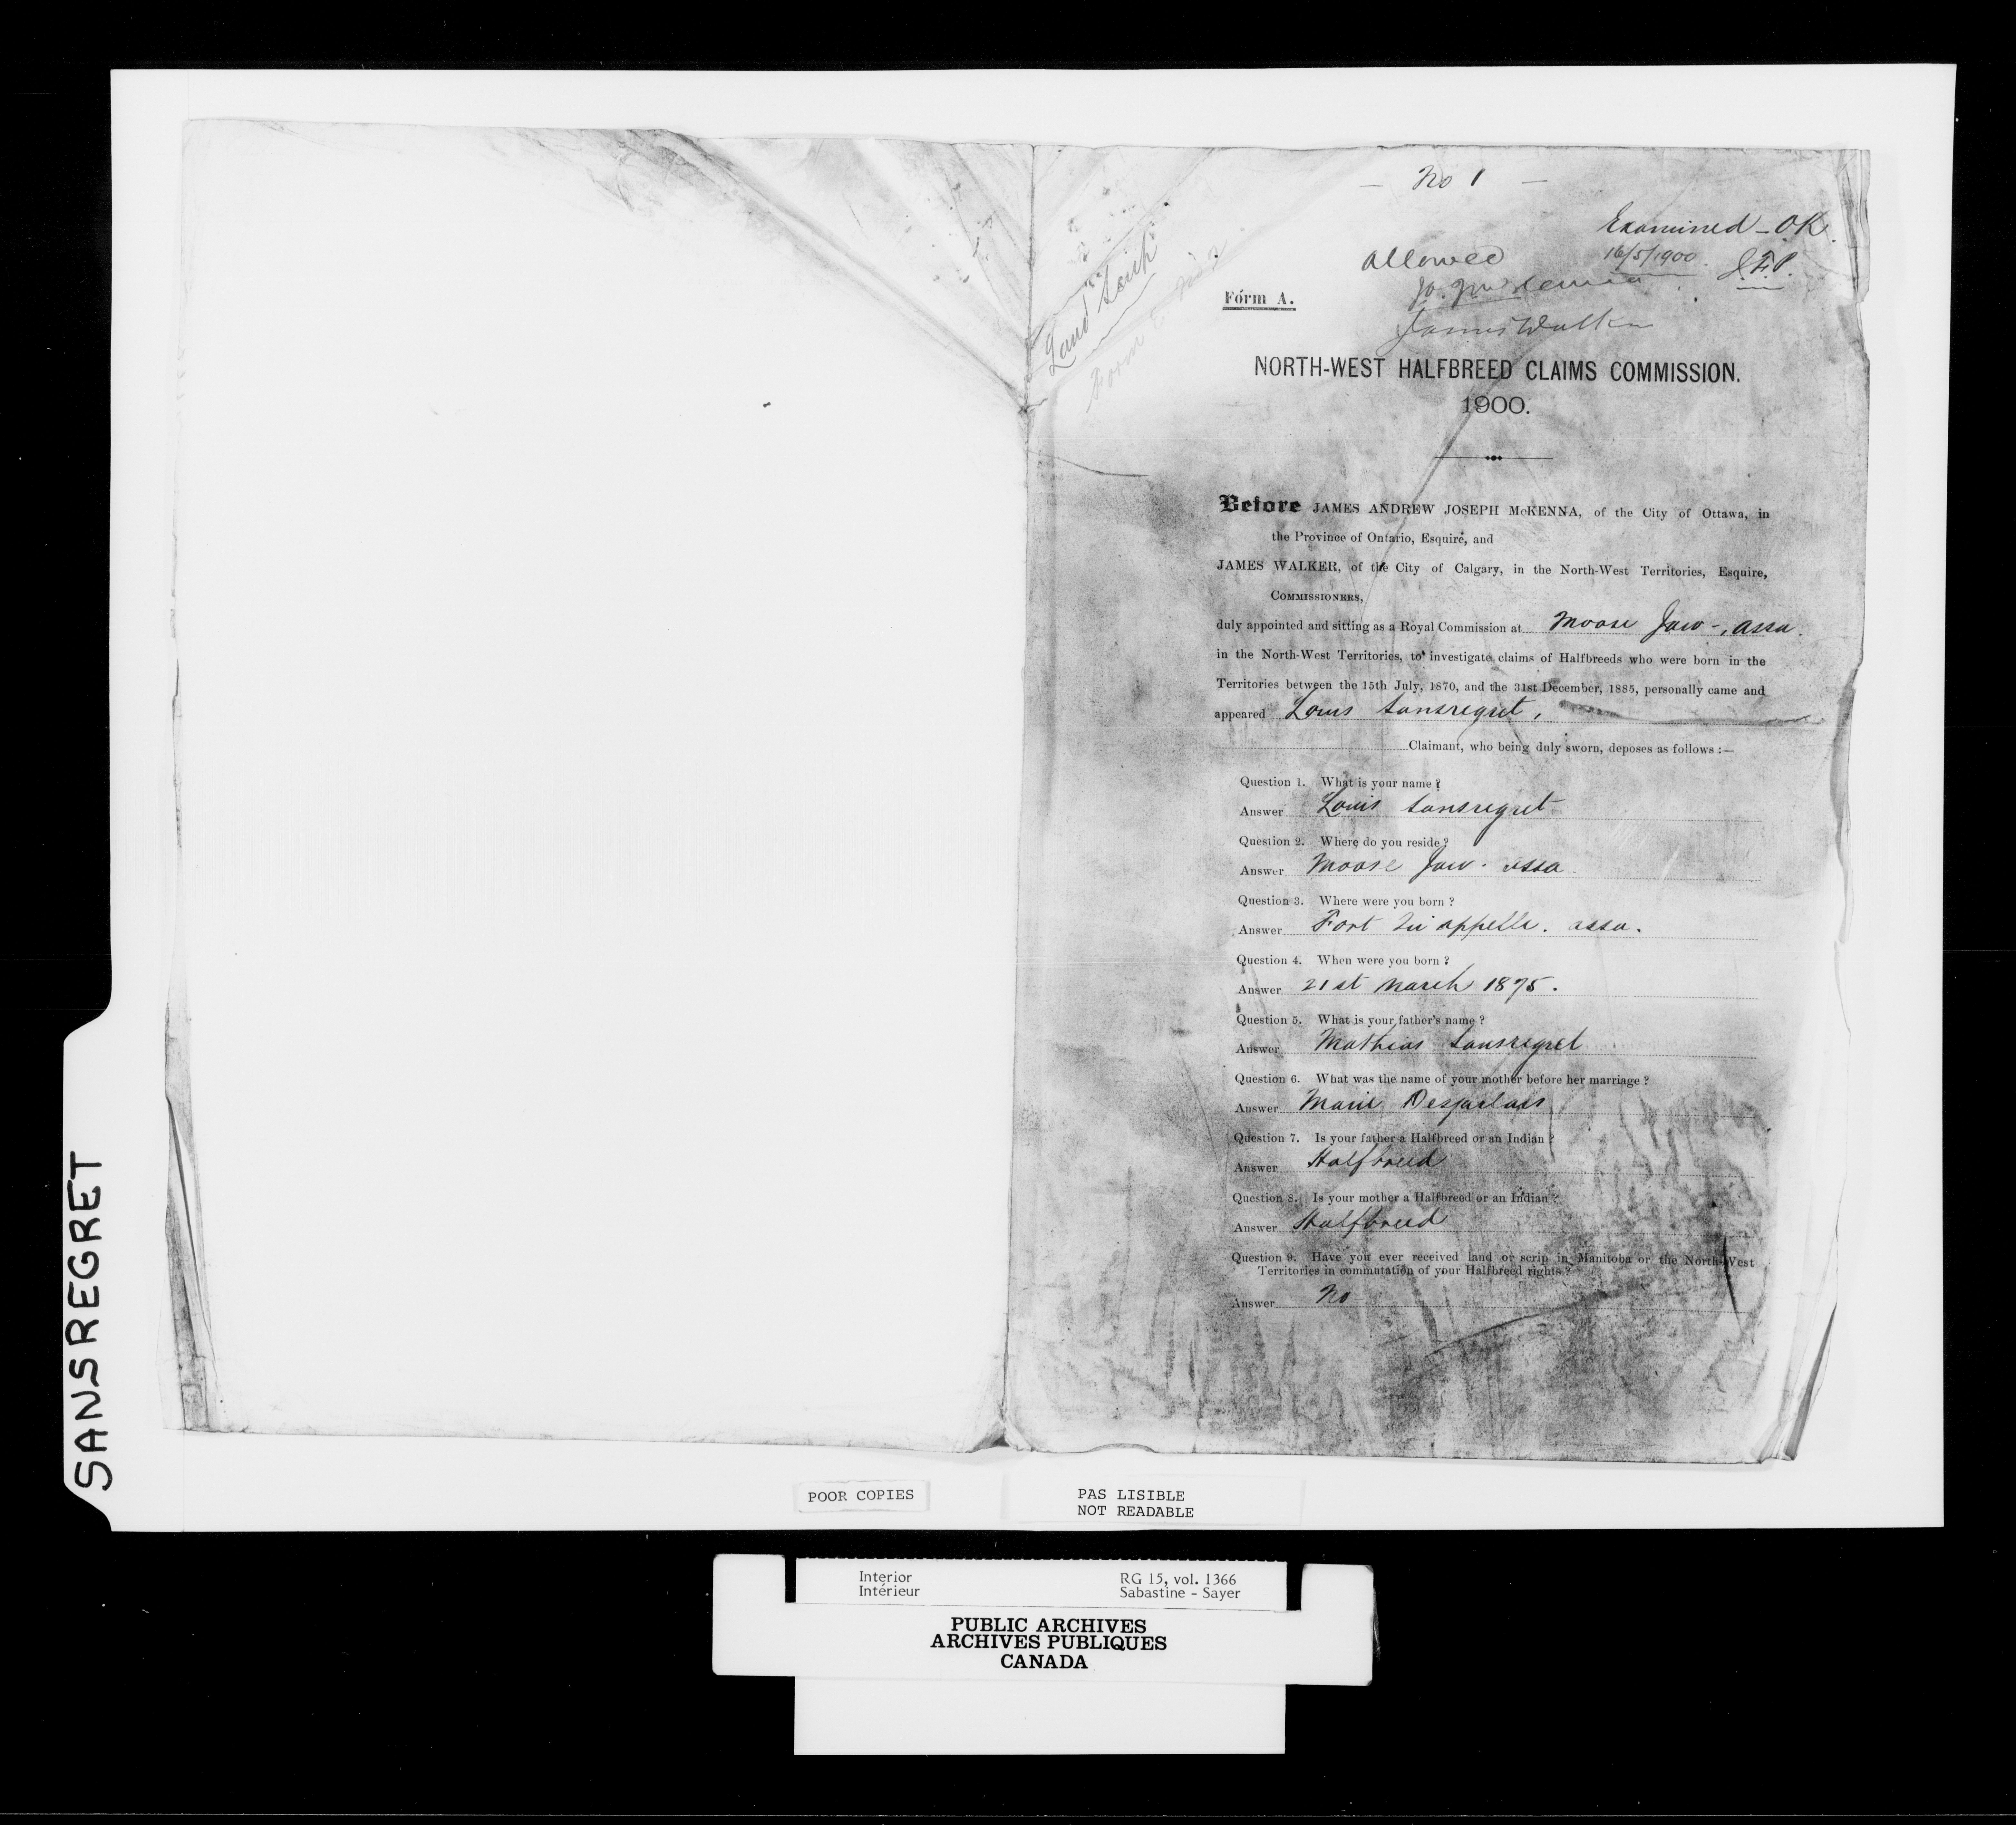 — No 1 —
Examined - OK.
allowed
16/5/1900.
J.F.P.
James Walker
Land Scrip
Form E No 2
Form A.
NORTH-WEST HALFBREED CLAIMS COMMISSION.
1900.
Before JAMES ANDREW JOSEPH McKENNA, of the City of Ottawa, in
the Province of Ontario, Esquire, and
JAMES WALKER, of the City of Calgary, in the North-West Territories, Esquire,
COMMISSIONERS,
duly appointed and sitting as a Royal Commission at Moose Jaw -, assa.
in the North-West Territories, to investigate claims of Halfbreeds who were born in the
Territories between the 15th July, 1870, and the 31st December, 1885, personally came and
appeared Louis Sansregret,
Claimant, who being duly sworn, deposes as follows :—
Question 1. What is your name ?
Answer Louis Sansregret
Question 2. Where do you reside ?
Answer Moose Jaw. assa.
Question 3. Where were you born ?
Answer Fort Qu'appelle. assa.
Question 4. When were you born ?
Answer 21st March 1875.
Question 5. What is your father's name ?
Answer Mathias Sansregret
Question 6. What was the name of your mother before her marriage ?
Answer Marie Desjarlais
Question 7. Is your father a Halfbreed or an Indian ?
Answer Halfbreed
Question 8. Is your mother a Halfbreed or an Indian ?
Answer Halfbreed
Question 9. Have you ever received land or scrip in Manitoba or the North-West
Territories in commutation of your Halfbreed rights ?
Answer No
SANSREGRET
POOR COPIES
PAS LISIBLE
NOT READABLE
Interior
Intérieur
RG 15, vol. 1366
Sabastine - Sayer
PUBLIC ARCHIVES
ARCHIVES PUBLIQUES
CANADA